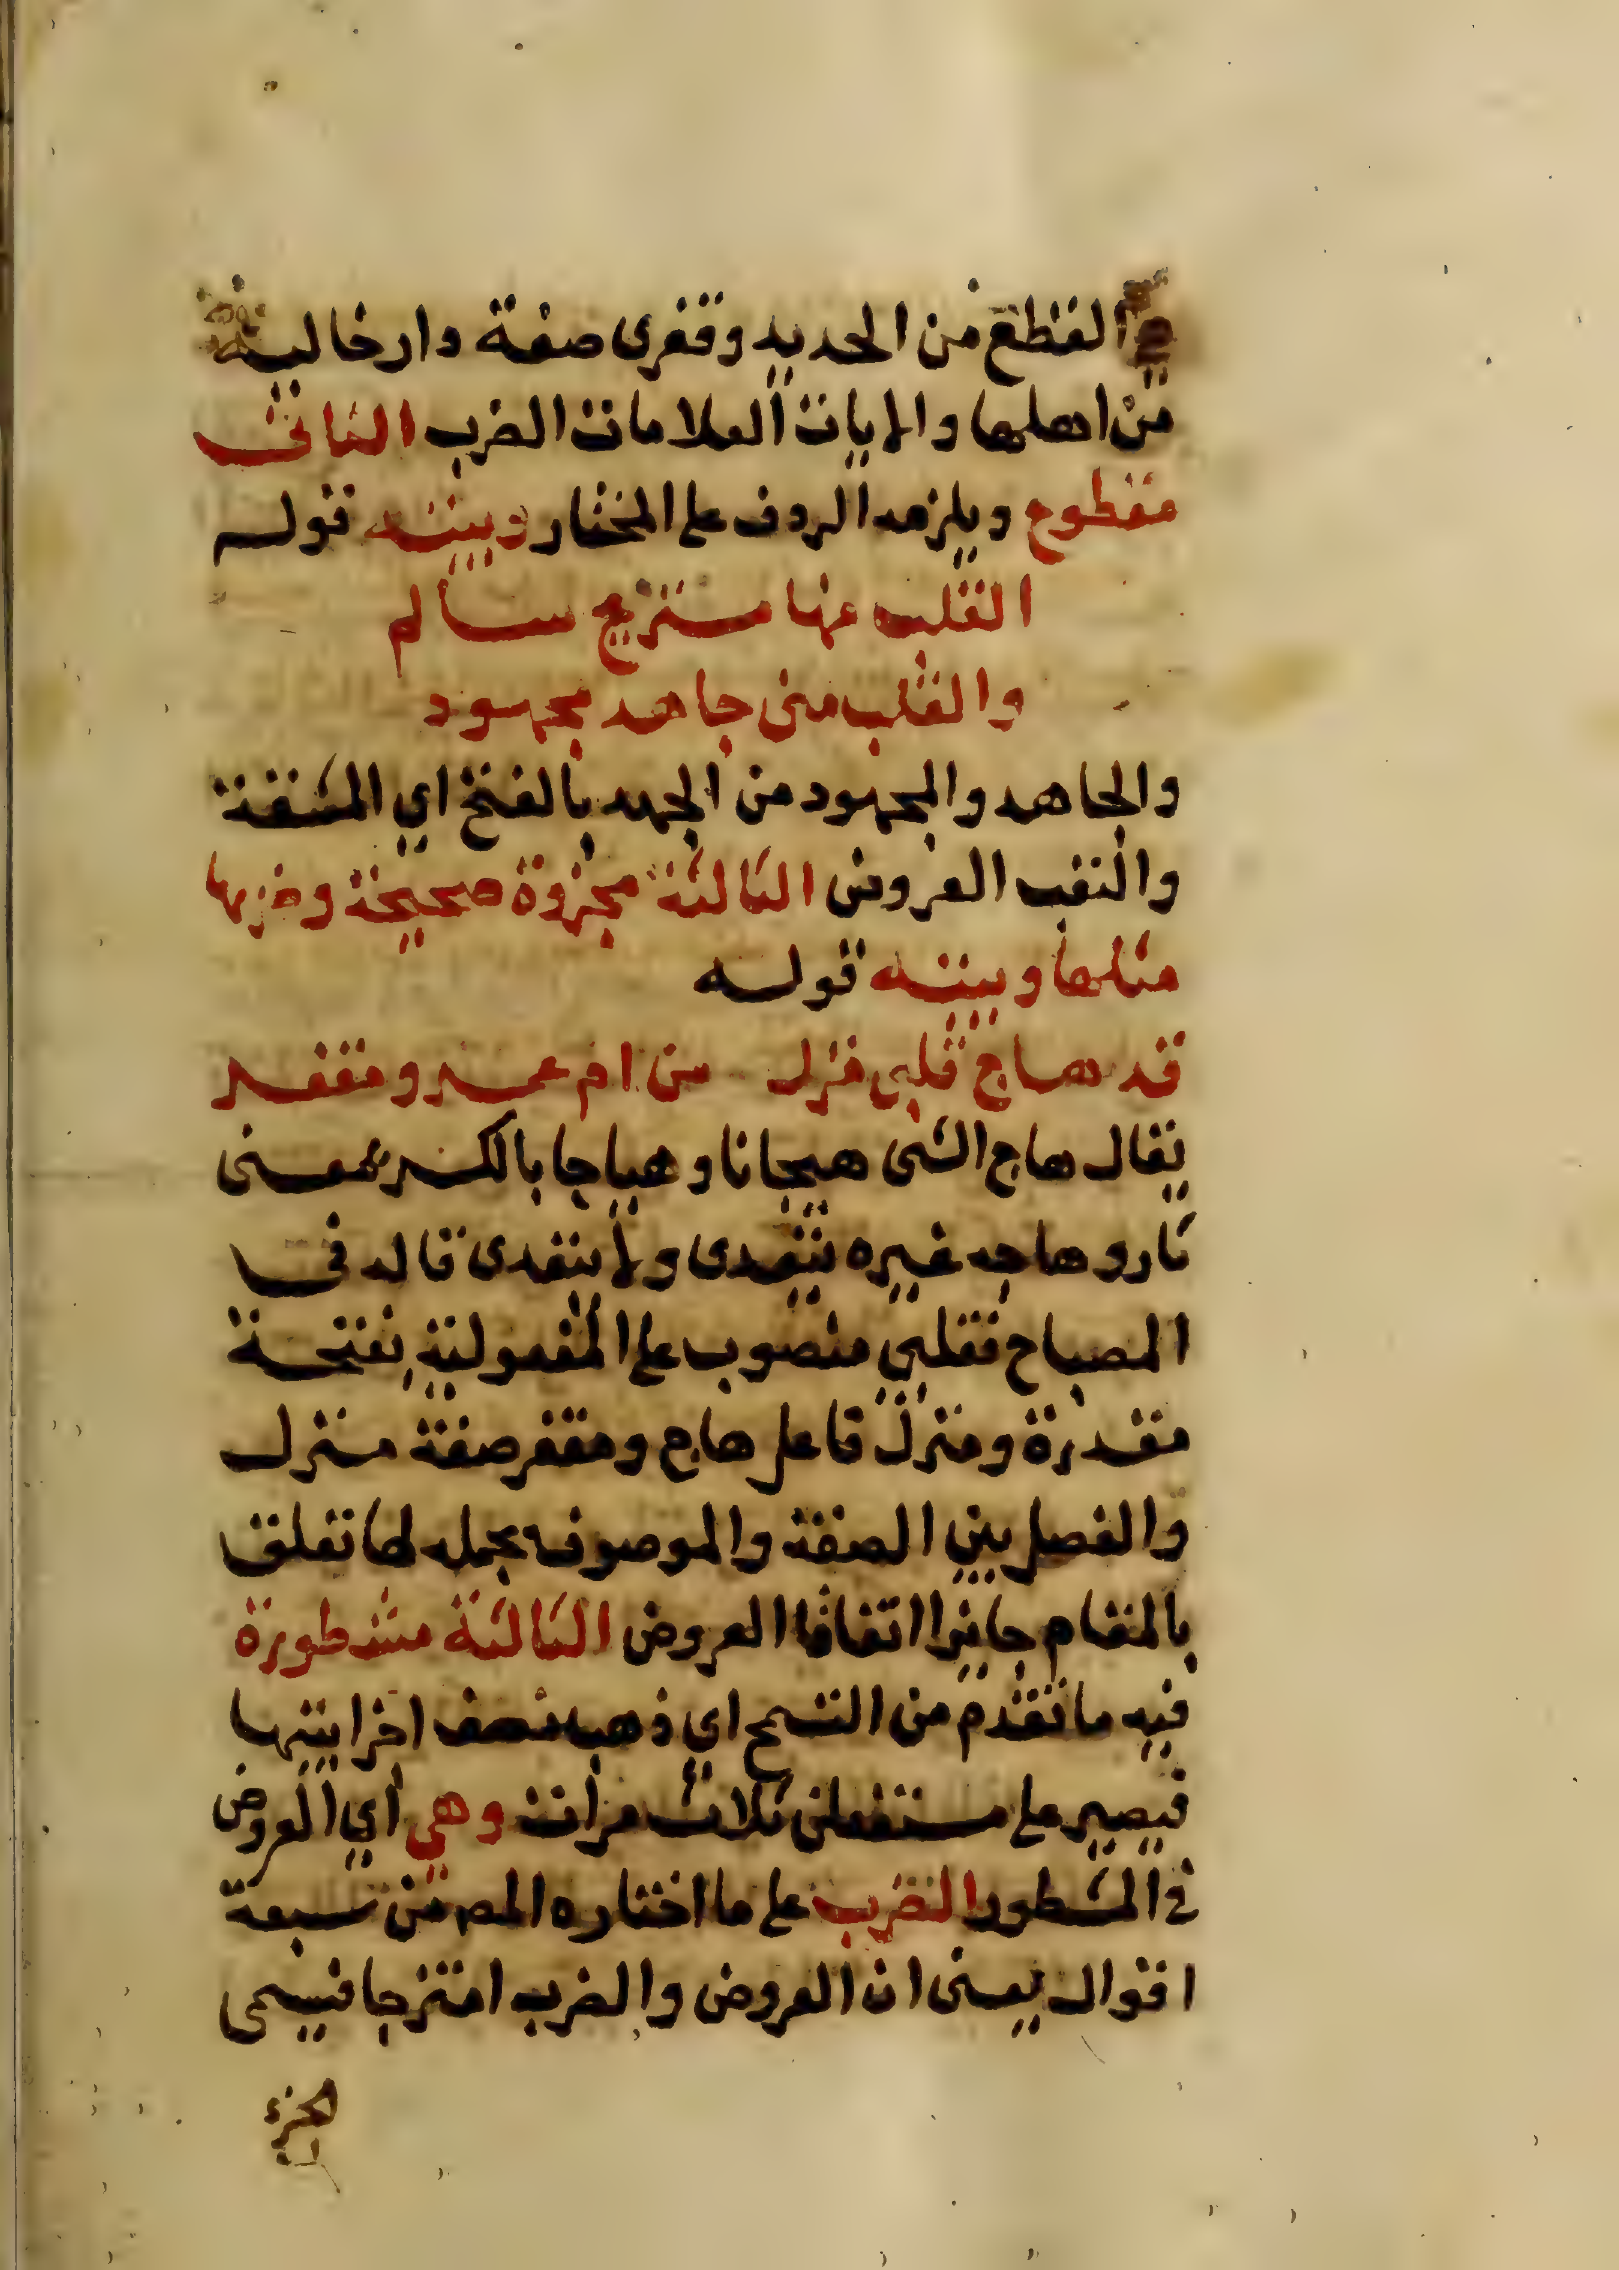 القطع من الحديد وقفرى صفة دار خالية
من اهلها والايات العلامات الضرب الثانى
مقطوع ويلزمه الردف على المختار وبيته قوله
القلب منها مستريح سالم
والقلب منى جاهد مجهود
والجاهد والمجهود من الجهد بالفتح اي المشقة
والتعب العروض الثالثة مجزوة صحيحة وضربها
مثلها وبيته قوله
قد هاج قلبى منزل من ام عمرو مقفر
يقال هاج الشى هيجانا وهياجا بالكسر بمعنى
ثار وهاجه غيره يتعدى ولا يتعدى قاله فى
المصباح فقلبي منصوب على المفعولية بفتحة
مقدرة ومنزل فاعل هاج ومقفر صفة منزل
والفصل بين الصفة والموصوف بجملة لها تعلق
بالمقام جايزا اتفاقا العروض الثالثة مشطورة
فيه ما تقدم من التسمح اي ذهب نصف اجزا بيتها
فيصير على مستفعلن ثلاث مرات وهي اي العروض
فى المشطور الضرب على ما اختاره المص من سبعة
اقوال يعنى ان العروض والضرب امتزجا فيسمى
الجزء